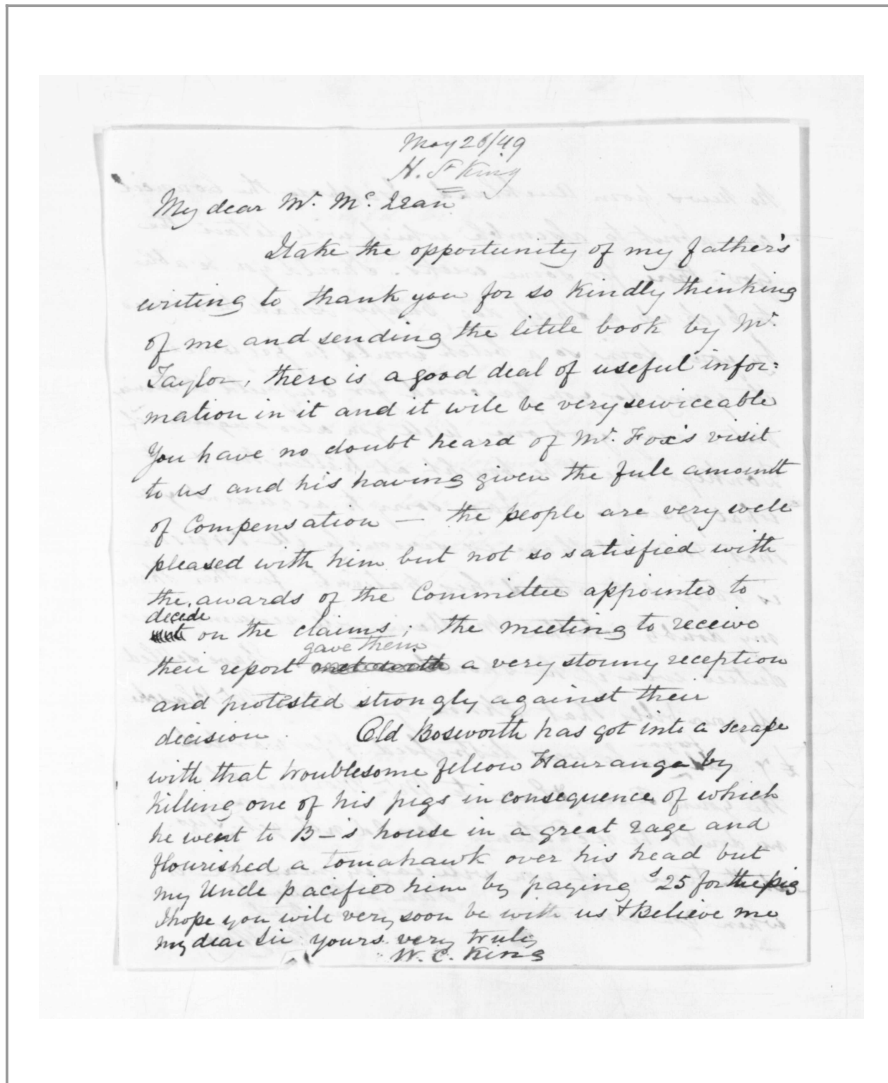 May 26/49
H. St King
My dear Mr. Mc. Lean
I take the opportunity of my father's
writing to thank you for so kindly thinking
of me and sending the little book by Mr.
Taylor, there is a good deal of useful infor:
mation in it and it will be very serviceable
You have no doubt heard of Mr. Fox's visit
to us and his having given the full amount
of Compensation — the people are very well
pleased with him but not so satisfied with
the awards of the Committee appointed to
decide
on the claims; the meeting to receive
gave them
their report met with a very stormy reception
and protested strongly against their
decision. Old Bosworth has got into a scrape
with that troublesome fellow Hauranga by
killing one of his pigs in consequence of which
he went to B—'s house in a great rage and
flourished a tomahawk over his head but
my Uncle pacified him by paying s25 for the pig
I hope you will very soon be with us & Believe me
my dear Sir yours very truly
W. C. King